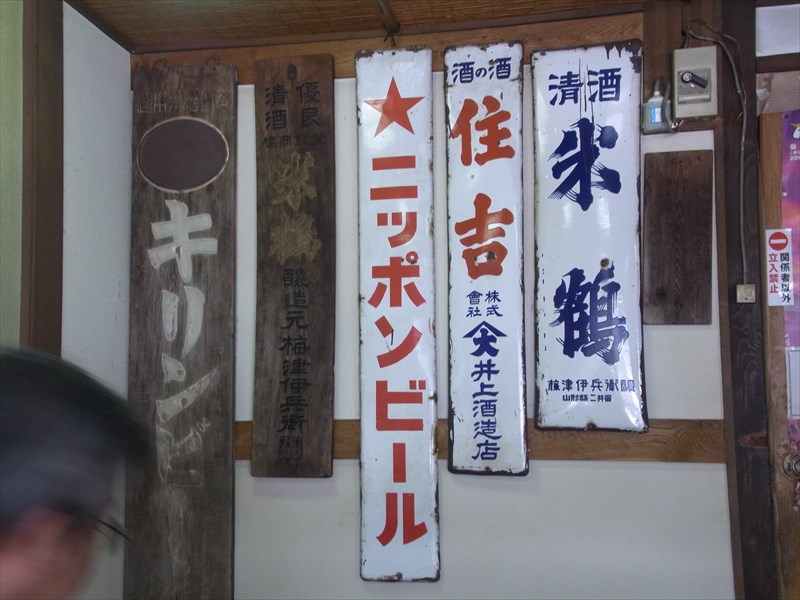 キリンビ
優良
清酒
米鶴
醸造元 梅津伊兵衛門
★ニッポンビール
酒の酒
住吉
株式
會社
大井上酒造店
清酒
米鶴
梅津伊兵衛醸
山形縣二井宿
関係者以外
立入禁止